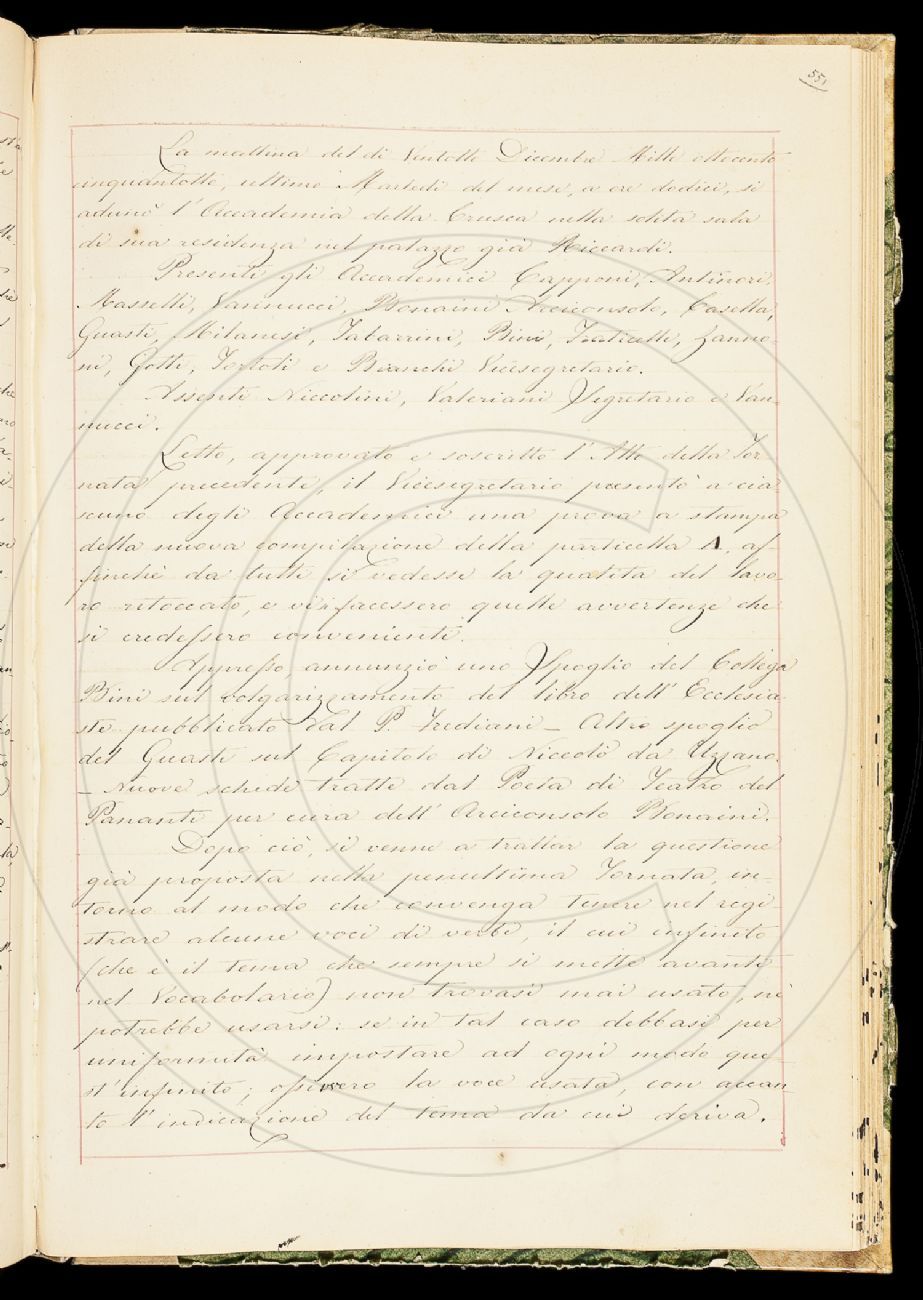 551
La mattina del dì Ventotto Dicembre Mille ottocento
cinquantotto, ultimo Martedì del mese, a ore dodici, si
adunò l'Accademia della Crusca nella solita sala
di sua residenza nel palazzo già Riccardi.
Presenti gli Accademici Capponi, Antinori,
Masselli, Vannucci, Bonaini Arciconsolo, Casella,
Guasti, Milanesi, Tabarrini, Bini, Fraticelli, Zanno-
ni, Gotti, Tortoli e Bianchi Vicesegretario.
Assenti Niccolini, Valeriani Segretario e Van-
nucci.
Letto, approvato e soscritto l'Atto della Tor
nata precedente, il Vicesegretario presentò a cia-
scuno degli Accademici una prova a stampa
della nuova compilazione della particella A, af-
finchè da tutti si vedesse la qualità del lavo-
ro ritoccato, e vi si facessero quelle avvertenze che
si credessero convenienti.
Appresso, annunziò uno Spoglio del Collega
Bini sul volgarizzamento del libro dell'Ecclesia-
ste pubblicato dal P. Frediani – Altro spoglio
del Guasti sul Capitolo di Niccolò da Uzzano.
– Nuove schede tratte dal Poeta di Teatro del
Pananti per cura dell'Arciconsolo Bonaini.
Dopo ciò, si venne a trattar la questione
già proposta nella penultima Tornata, in-
torno al modo che convenga tenere nel regi-
strare alcune voci di verbi, il cui infinito
(che è il tema che sempre si mette avanti
nel Vocabolario) non trovasi mai usato, nè
potrebbe usarsi: se in tal caso debbasi per
uniformità impostare ad ogni modo que-
st'infinito; ossivvero la voce usata, con accan
to l'indicazione del tema da cui deriva.